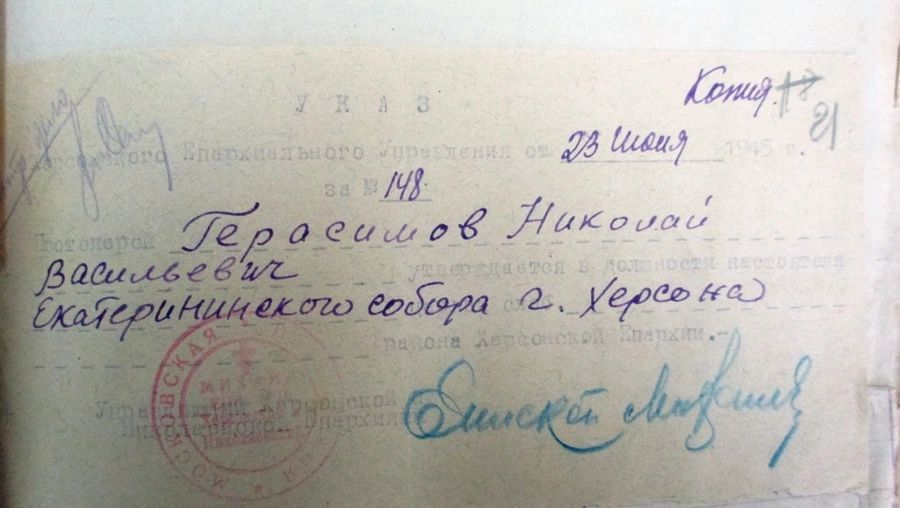 Копия.
18
21
УКАЗ
Епархиального Управления от 23 июня 1945 г.
за № 148
Протоиерей Герасимов Николай
Васильевич утверждается в должности настоятеля
Екатерининского собора г. Херсона
района Херсонской Епархии.-
Управляющий Херсонской
Николаевской Епархии
Епископ Михаил
МОСКОВСКАЯ
МИХАИЛ